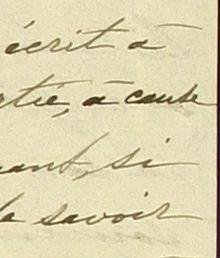 écrit à
rtie, à cause
nant, si
de savoir